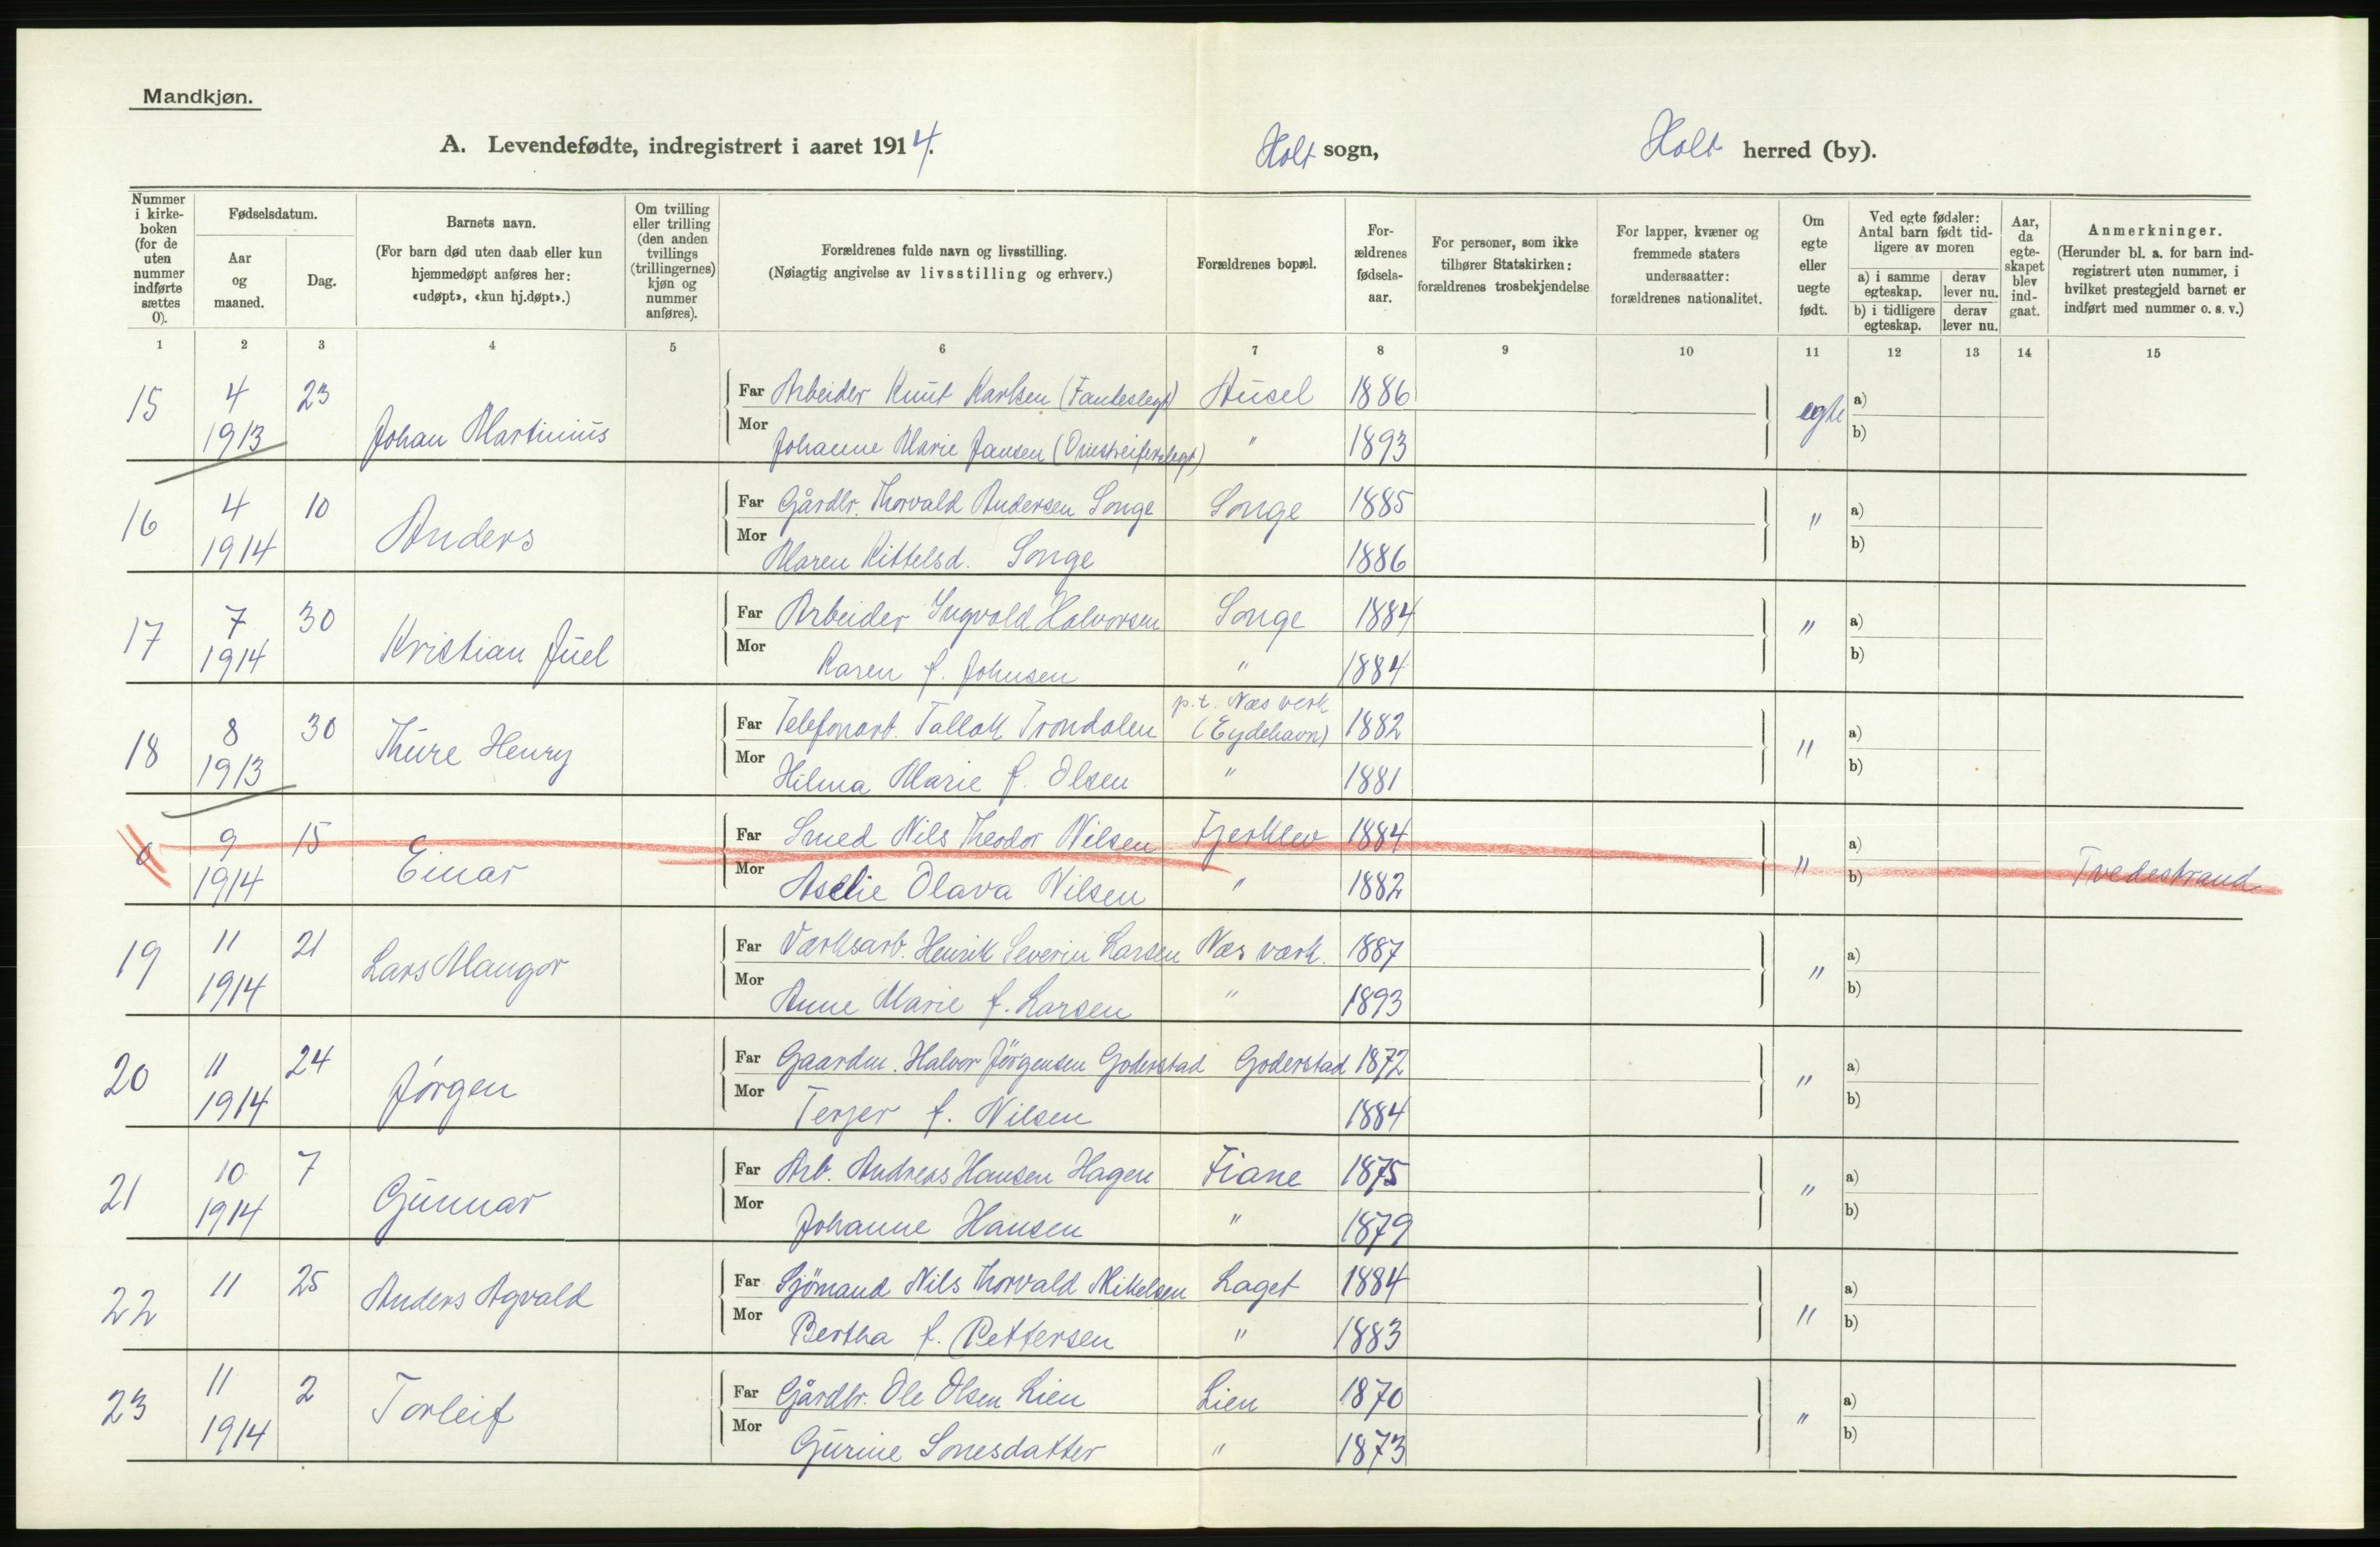 Mandkjøn.
A. Levendefødte, indregistrert i aaret 1914.
Holt sogn,
Holt herred (by).
Nummer i kirke-boken (for de uten nummer indførte sættes 0).
Fødselsdatum.
Aar og maaned.
Dag.
Barnets navn.
(For barn død uten daab eller kun hjemmedøpt anføres her: «udøpt», «kun hj.døpt».)
Om tvilling eller trilling (den anden tvillings (trillingernes) kjøn og nummer anføres).
Forældrenes fulde navn og livsstilling.
(Nøiagtig angivelse av livsstilling og erhverv.)
Forældrenes bopæl.
For-ældrenes fødsels-aar.
For personer, som ikke tilhører Statskirken: forældrenes trosbekjendelse
For lapper, kvæner og fremmede staters undersaatter: forældrenes nationalitet.
Om egte eller uegte født.
Ved egte fødsler: Antal barn født tid-ligere av moren
a) i samme egteskap.
derav lever nu.
b) i tidligere egteskap.
derav lever nu.
Aar, da egte-skapet blev ind-gaat.
Anmerkninger.
(Herunder bl. a. for barn ind-registrert uten nummer, i hvilket prestegjeld barnet er indført med nummer o. s. v.)
1 2 3 4 5 6 7 8 9 10 11 12 13 14 15
15 4 23 Far Arbeider Knut Karlsen (Fanteslegt) Husel 1886 egte a)
1913 Johan Martinius Mor Johanne Marie Jansen (Omstreiferslegt) " 1893 b)
16 4 10 Far Gårdbr. Thorvald Andersen Songe Songe 1885 " a)
1914 Anders Mor Maren Kittelsd. Songe 1886 b)
17 7 30 Far Arbeider Ingvald Halvorsen Songe 1884 " a)
1914 Kristian Juel Mor Karen f. Johnsen " 1884 b)
p.t. Næs verk
18 8 30 Thure Henry Far Telefonarb. Tallak Trondalen (Eydehavn) 1882 " a)
1913 Mor Hilma Marie f. Olsen " 1881 b)
0 9 15 Far Smed Nils Theodor Nilsen Fjerklev 1884 " a)
1914 Einar Mor Aslie Olava Nilsen " 1882 b) Tvedestrand
19 11 21 Far Værksarb. Henrik Severin Larsen Næs værk. 1887 " a)
1914 Lars Mangor Mor Anne Marie f. Larsen " 1893 b)
20 11 24 Far Gaardm. Halvor Jörgensen Goderstad Goderstad 1872 " a)
1914 Jörgen Mor Terjer f. Nilsen 1884 b)
21 10 7 Far Arb. Andreas Hansen Hagen Fiane 1875 " a)
1914 Gunnar Mor Johanne Hansen " 1879 b)
22 11 25 Anders Agvald Far Sjömand Nils Thorvald Mikkelsen Laget 1884 " a)
Mor Bertha f. Pettersen " 1883 b)
23 11 2 Far Gårdbr. Ole Olsen Lien Lien 1870 " a)
1914 Torleif Mor Gurine Sonesdatter " 1873 b)